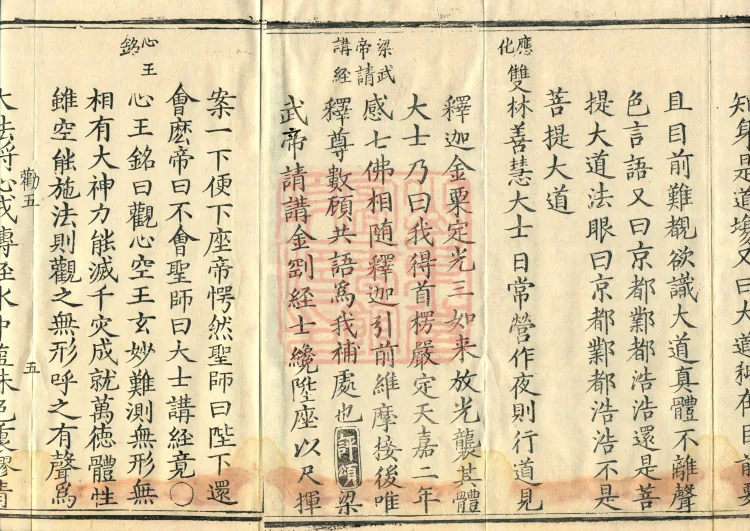 知身是道場又曰大道秖在目前要
且目前難覩欲識大道真體不離聲
色言語又曰京都鄴都浩浩還是菩
提大道法眼曰京都鄴都浩浩不是
菩提大道
應化
雙林善慧大士日常營作夜則行道見
釋迦金粟定光三如来放光襲其體
大士乃曰我得首楞嚴定天嘉二年
感七佛相随釋迦引前維摩接後唯
梁武
帝請
講經
釋尊數顧共語爲我補處也評頌梁
武帝請講金剛經士纔陞座以尺揮
案一下便下座帝愕然聖師曰陛下還
會麽帝曰不會聖師曰大士講經竟〇
心王
銘
心王銘曰觀心空王玄妙難測無形無
相有大神力能滅千灾成就萬德體性
雖空能施法則觀之無形呼之有聲爲
勸五 五
大法將心戒傳經水中鹽味色裏膠青